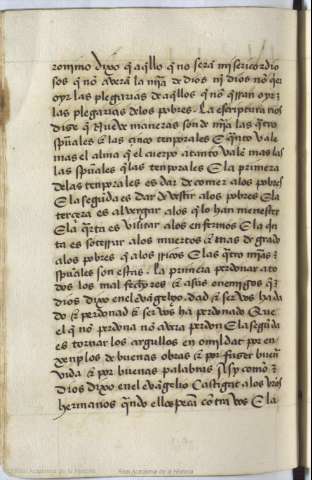 ronimo dixo q̃ aq̃llo q̃ no sera miserïcordio
sos q̃ no avera la mỹa de dios ni dios no q̃r
oyr las plegarias de aq̃llos q̃ no q̃rran oyr
las plegarias delos pobres. La escriptura nos
dise q̃ nueve maneras son de mỹa las q̃tro
spũales & las cinco tenporales E q̃nto vale
mas el alma q̃ el cuerpo atanto valẽ mas las
las spũales q̃ las tenporales E la primera
delas tenporales es dar de comer alos pobres
E la segũda es dar de vestir alos pobres E la
tercera es alvergar alos q̃ lo han menester
E la q̃rta es visitar alos enfermos E la q̃n
ta es soterrar alos muertos & mas de grado
alos pobres q̃ alos rricos E las q̃tro mỹas
spũales son estas. La primera perdonar a to
dos los mal fechores & a sus enemigos q̃
dios dixo en el evãgelyo. dad & ser vos ha da
do & perdonad & ser vos ha perdonado Que
el q̃ no perdona no avera perdon E la segũda
es tornar los orgullos en omildat por en
xenplos de buenas obras & por fazer buena
vida & por buenas palabras Asy como
Dios dixo en el evãgelio Castigat alos vros
hermanos q̃ndo ellos pecã cõtra vos E la
Real Academia de la Historia
Real Academia de la Historia